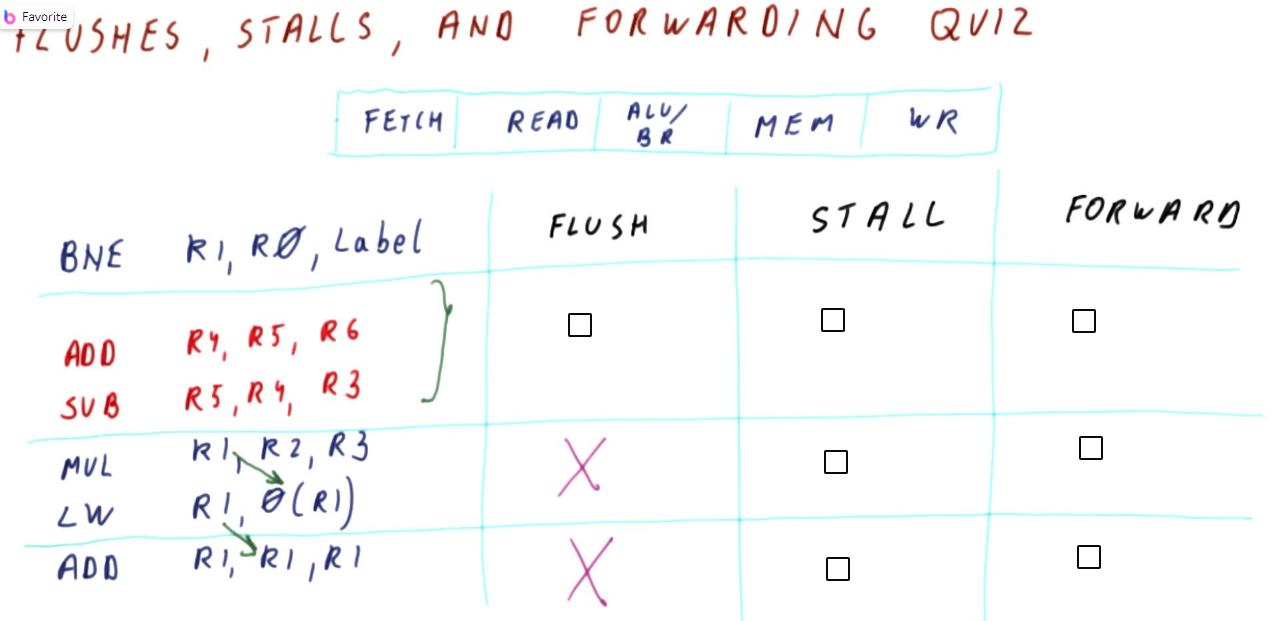 Favorite
FLUSHES, STALLS, AND FORWARDING QUIZ
FETCH READ ALU/BR MEM WR
BNE R1, RØ, Label FLUSH STALL FORWARD
ADD R4, R5, R6
SUB R5, R4, R3
MUL R1, R2, R3
LW R1, Ø(R1)
ADD R1, R1, R1